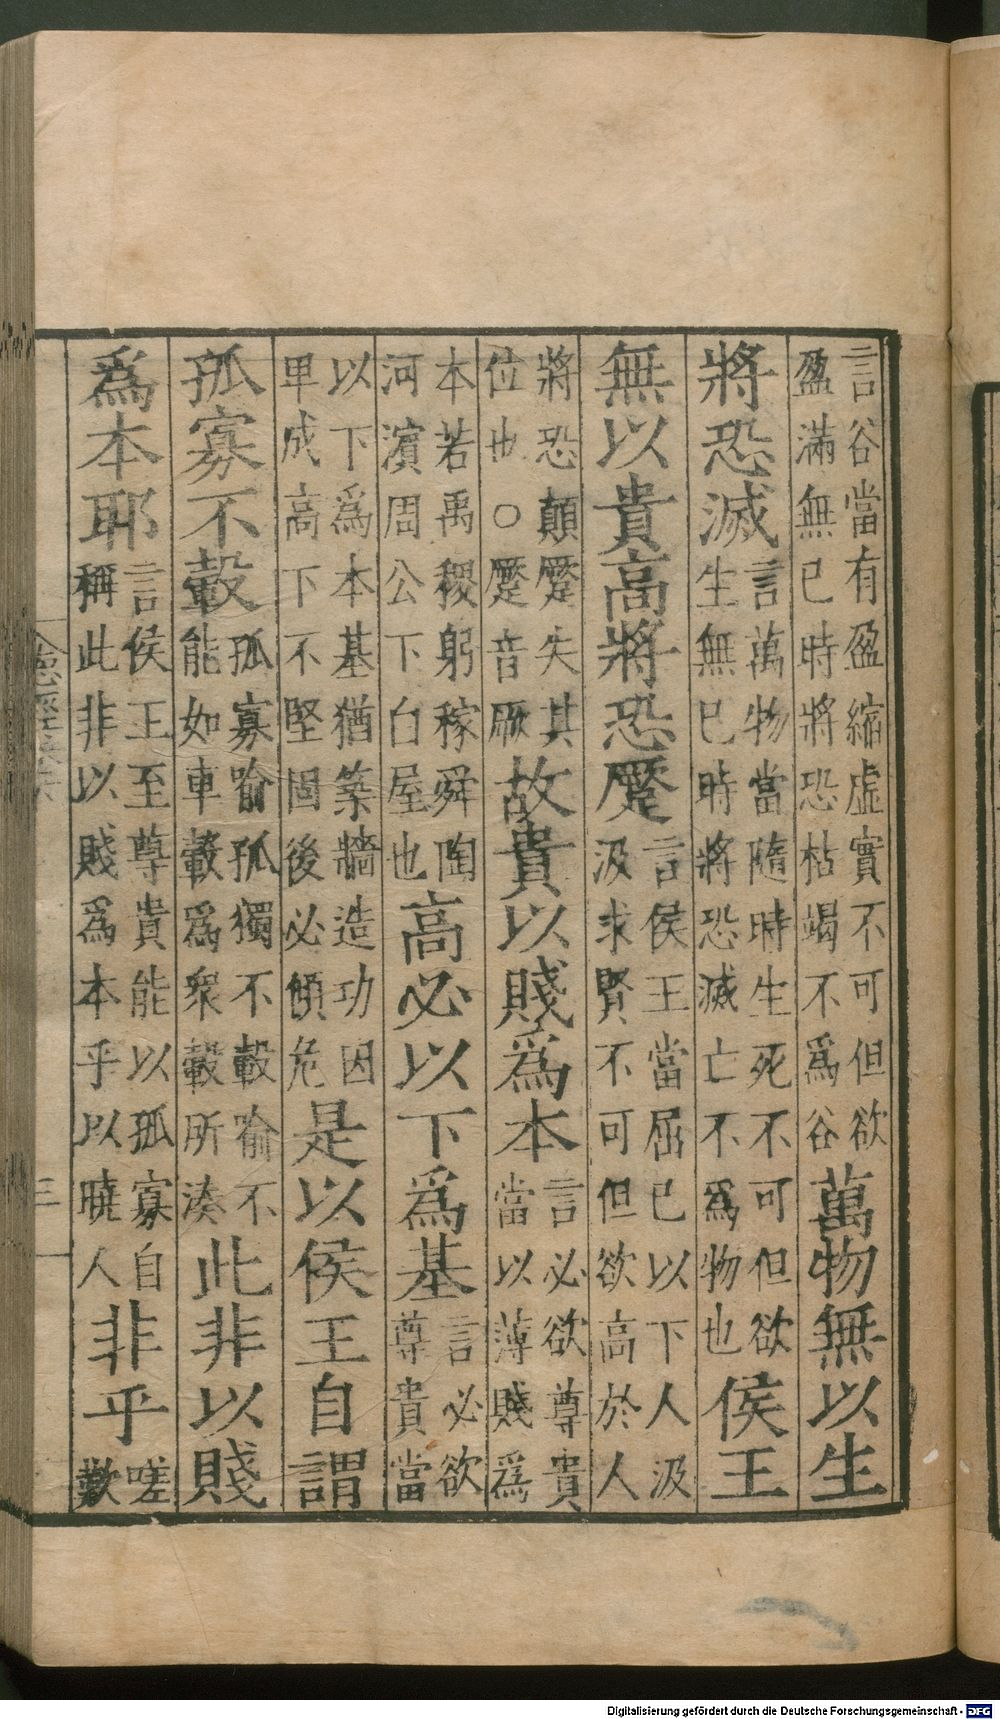 言谷當有盈縮虛實不可但欲盈滿無已時將恐枯竭不爲谷萬物無以生
將恐滅言萬物當隨時生死不可但欲生無已時將恐滅亡不爲物也侯王
無以貴高將恐蹷言侯王當屈已以下人汲汲求賢不可但欲高於人
將恐顛蹷失其位也○蹷音厥故貴以賤爲本言必欲尊貴當以薄賤爲
本若禹稷躬稼舜陶河濱周公下白屋也高必以下爲基言必欲尊貴當
以下爲本基猶築牆造功因卑成高下不堅固後必傾危是以侯王自謂
孤寡不轂孤寡喻孤獨不轂喻不能如車轂爲衆轂所湊此非以賤
爲本耶言侯王至尊貴能以孤寡自稱此非以賤爲本乎以曉人非乎嗟歎
三
Digitalisierung gefördert durch die Deutsche Forschungsgemeinschaft - DFG